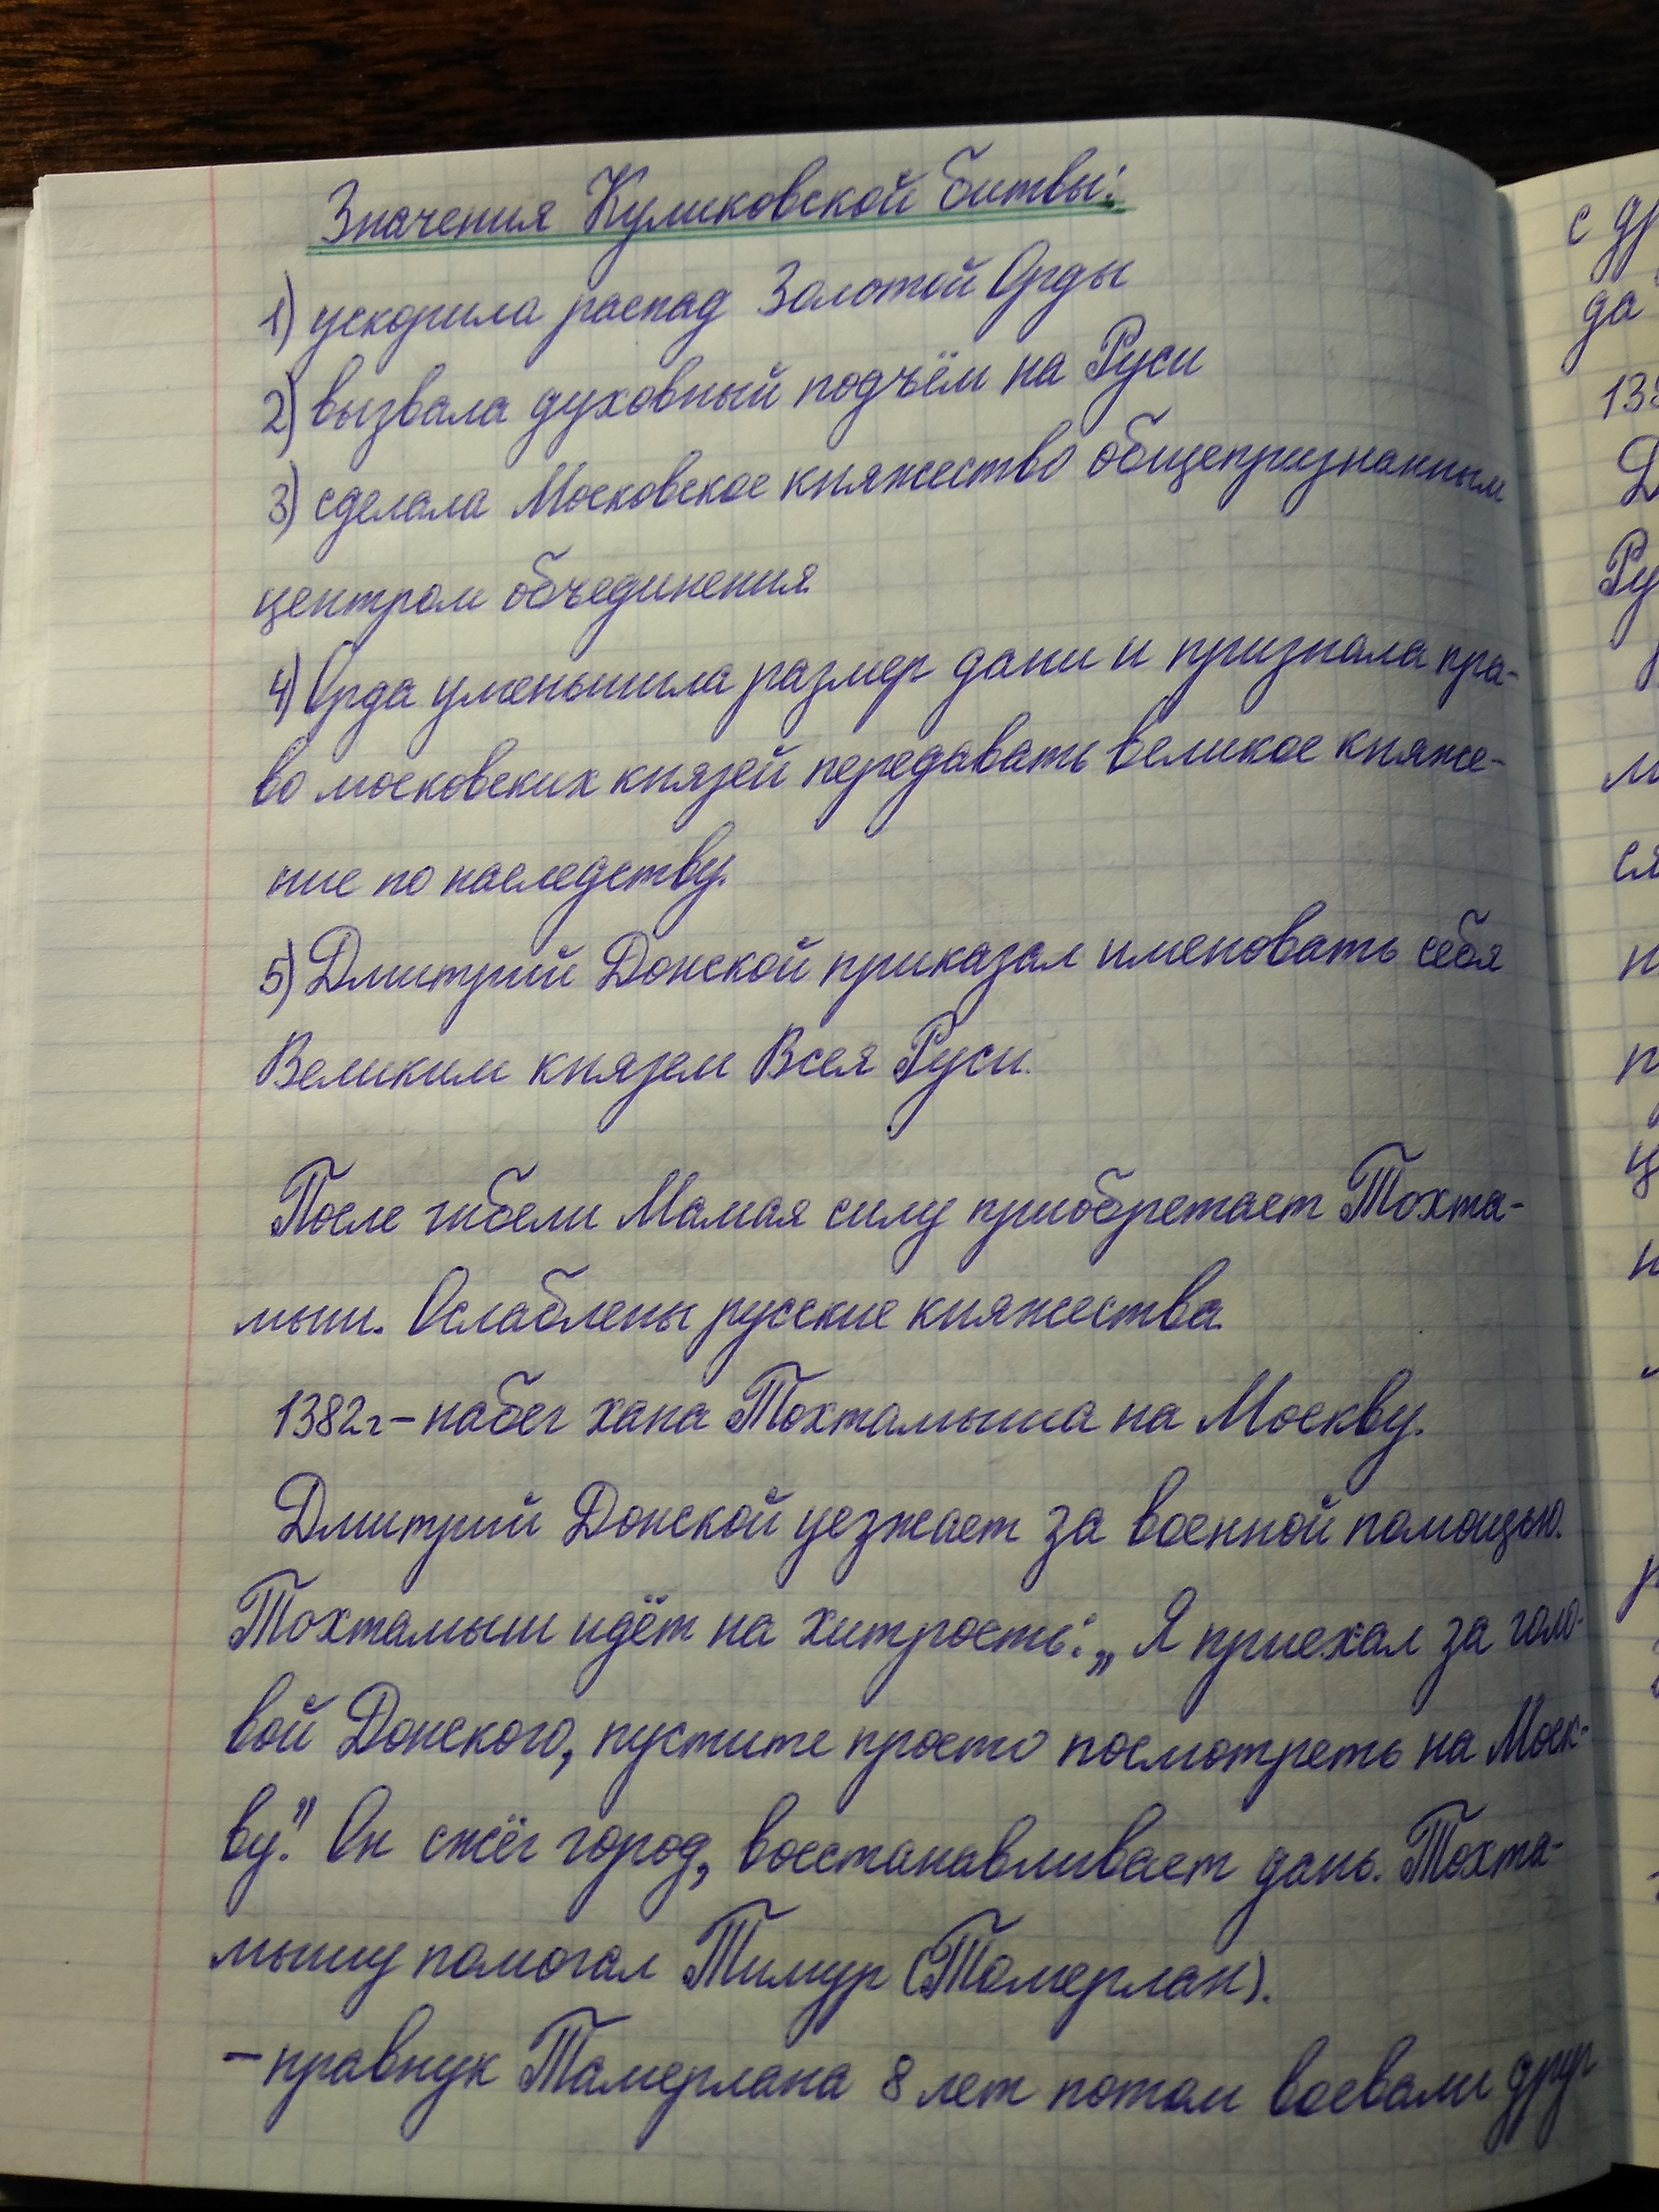 Значения Куликовской битвы:
1) ускорила распад Золотой Орды
2) вызвала духовный подъём на Руси
3) сделала Московское княжество общепризнанным
центром объединения.
4) Орда уменьшила размер дани и признала пра-
во московских князей передавать великое княже-
ние по наследству.
5) Дмитрий Донской приказал именовать себя
Великим князем Всея Руси.
После гибели Мамая силу приобретает Тохта-
мыш. Ослаблены русские княжества.
1382г – набег хана Тохтамыша на Москву.
Дмитрий Донской уезжает за военной помощью.
Тохтамыш идёт на хитрость: „Я приехал за голо-
вой Донского, пустите просто посмотреть на Моск-
ву". Он сжёг город, восстанавливает дань. Тохта-
мышу помогал Тимур (Тамерлан).
– правнук Тамерлана 8 лет потом воевали друг
с др
да
138
Д
Ру